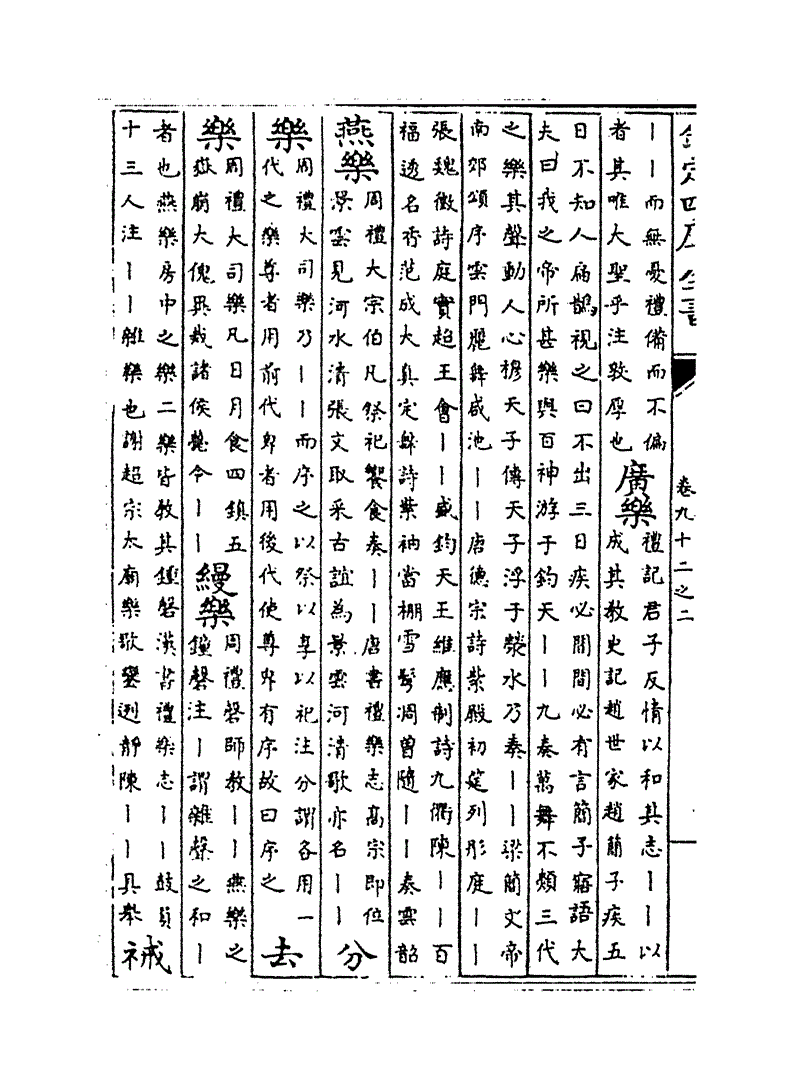 欽定四庫全書
卷九十二之二
｜｜而無憂禮備而不偏
者其唯大聖乎注敦厚也
廣樂
禮記君子反情以和其志｜｜以
成其教史記趙世家趙簡子疾五
日不知人扁鵲視之曰不出三日疾必間間必有言簡子寤語大
夫曰我之帝所甚樂與百神游于鈞天｜｜九奏萬舞不類三代
之樂其聲動人心穆天子傳天子浮于滎水乃奏｜｜梁簡文帝
南郊頌序雲門麗舞咸池｜｜唐德宗詩紫殿初筵列彤庭｜｜
張魏徵詩庭實超王會｜｜盛鈞天王維應制詩九衢陳｜｜百
福透名香范成大真定舞詩紫袖當棚雪鬢凋曾隨｜｜奏雲韶
燕樂
周禮大宗伯凡祭祀饗食奏｜｜唐書禮樂志高宗即位
景雲見河水清張文取采古誼為景雲河清歌亦名｜｜
分
樂
周禮大司樂乃｜｜而序之以祭以享以祀注分謂各用一
代之樂尊者用前代卑者用後代使尊卑有序故曰序之
去
樂
周禮大司樂凡日月食四鎮五
嶽崩大傀異烖諸侯薨令｜｜
縵樂
周禮磬師教｜｜燕樂之
鐘磬注｜謂雜聲之和｜
者也燕樂房中之樂二樂皆教其鐘磬漢書禮樂志｜｜鼓員
十三人注｜｜雜樂也謝超宗太廟樂歌鑾迾靜陳｜｜具舉
祴